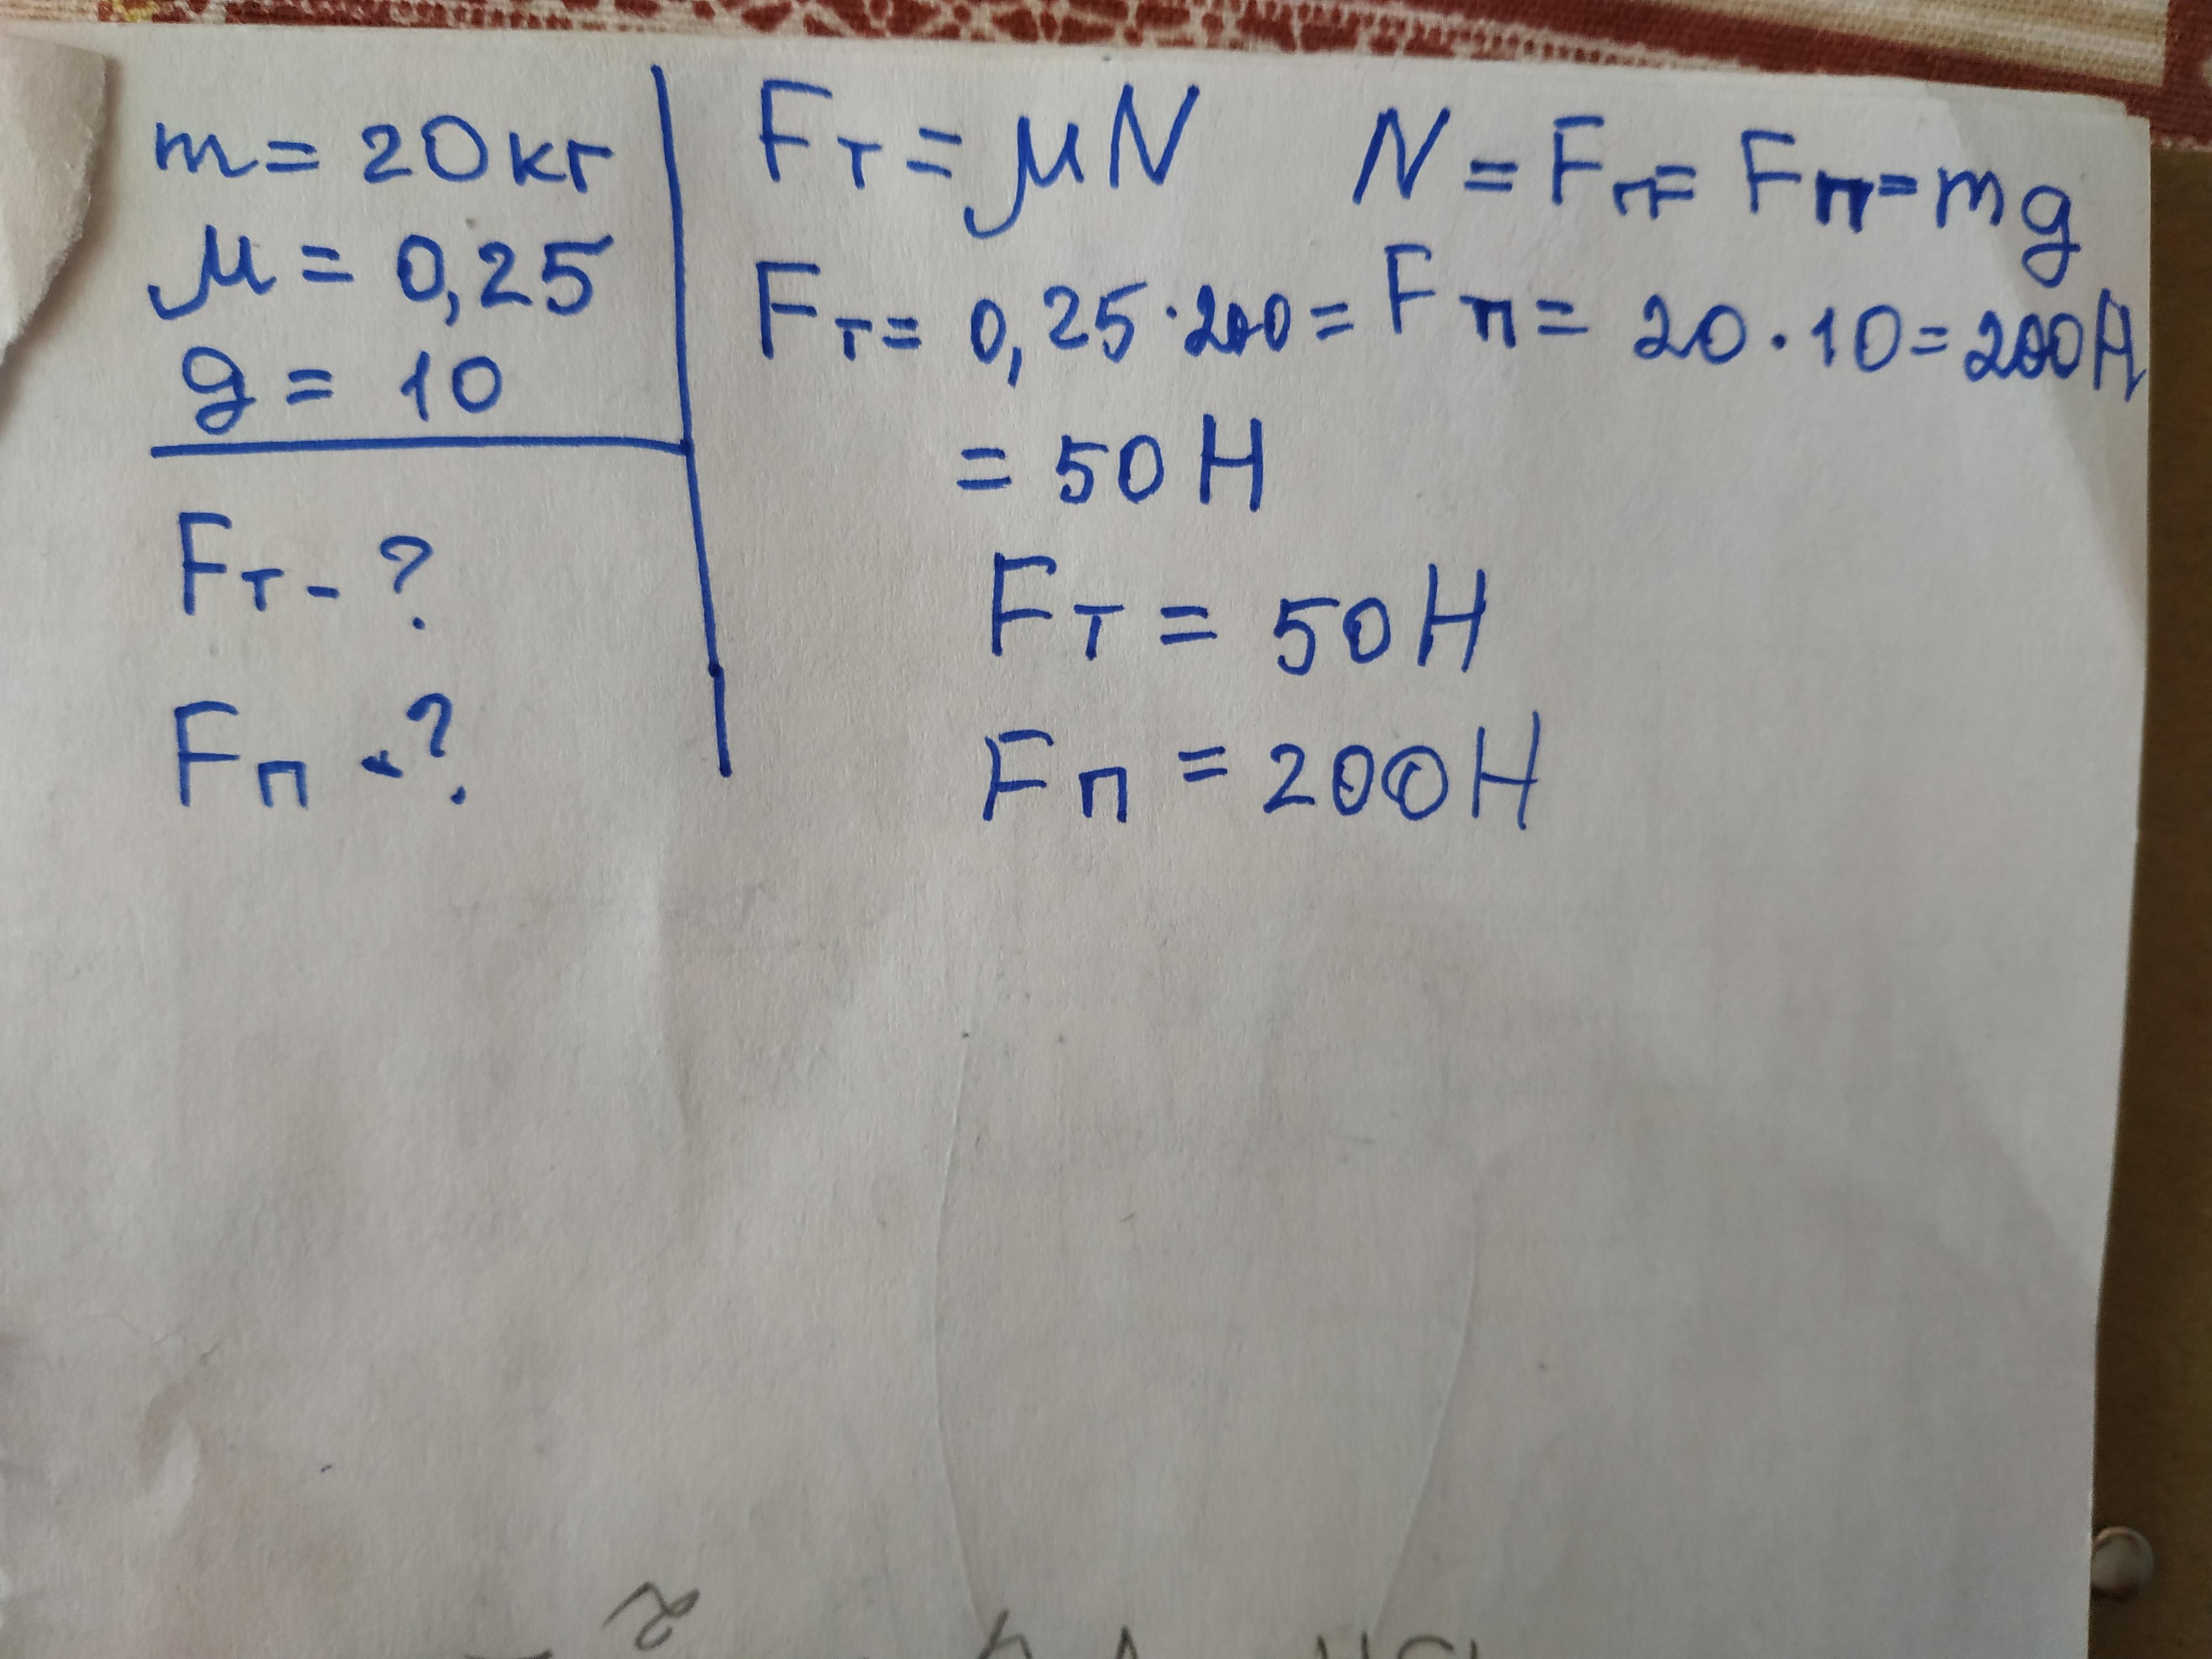 m = 20 кг
μ = 0,25
g = 10
Fт - ?
Fп - ?
Fт = μN N = Fп = Fп = mg
Fт = 0,25 · 200 = Fп = 20 · 10 = 200 Н
= 50 Н
Fт = 50 Н
Fп = 200 Н